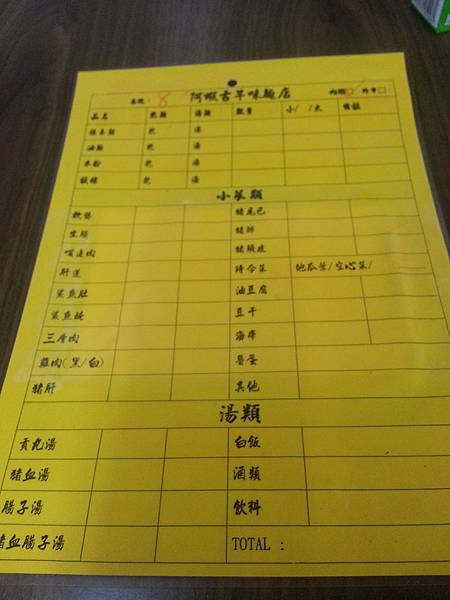 桌號: 8 阿嘏古早味麵店 內用□ 外帶□
品名 乾類 湯類 數量 小/ /大 備註
乾 湯
油麵 乾 湯
米粉 乾 湯
粄條 乾 湯
小菜類
軟腸 豬尾巴
生腸 豬肺
嘴邊肉 豬頭皮
肝連 時令菜 地瓜葉/空心菜/
鯊魚肚 油豆腐
鯊魚 豆干
三層肉 海帶
雞肉(黑/白) 魯蛋
豬肝 其他
湯類
貢丸湯 白飯
豬血湯 酒類
腸子湯 飲料
豬血腸子湯 TOTAL :